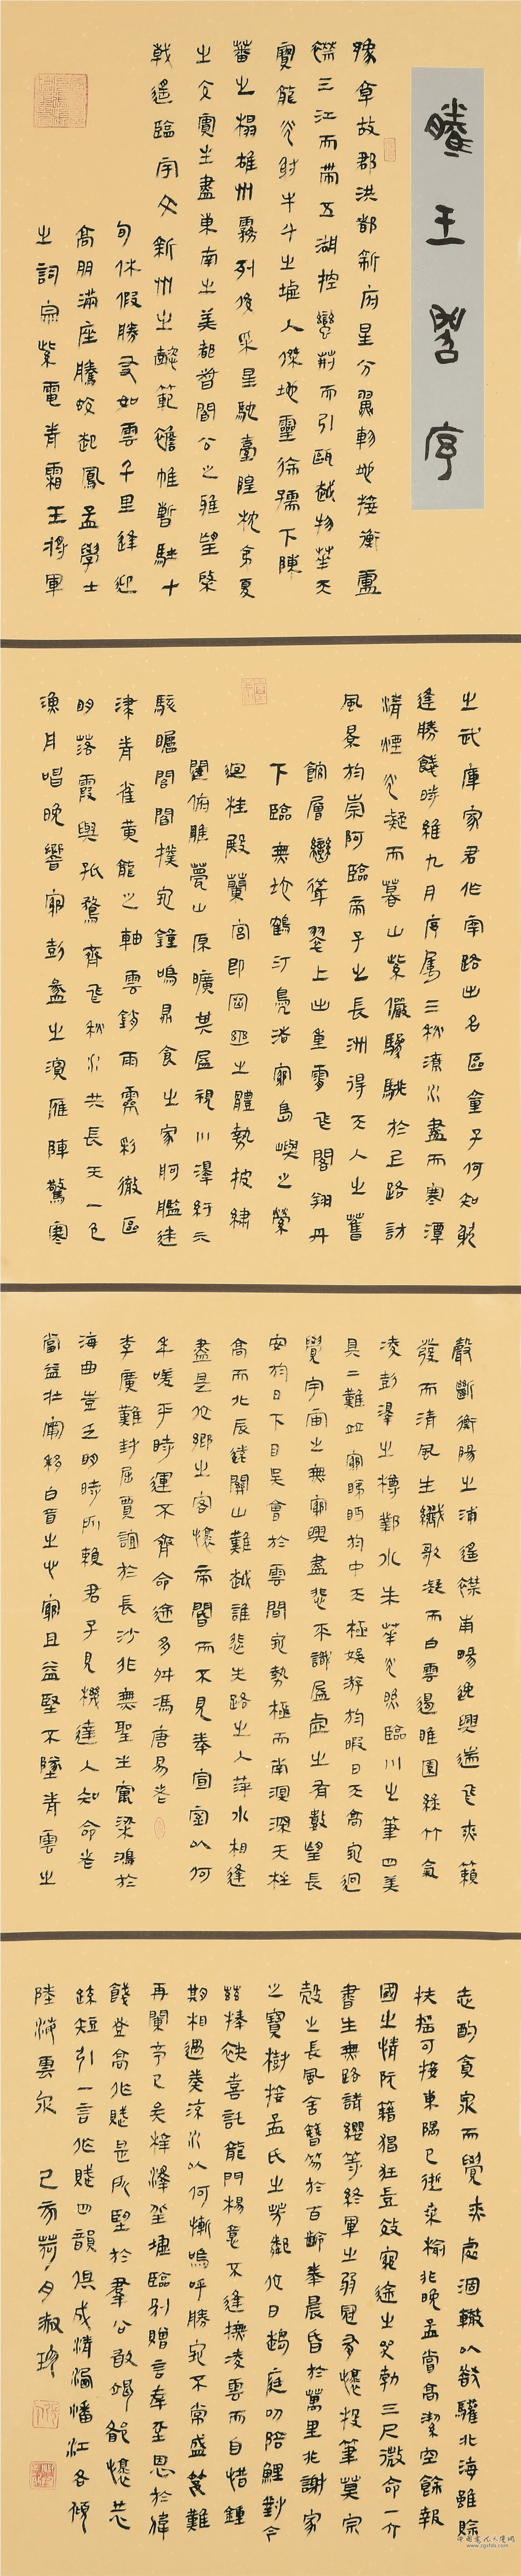 滕王閣序
豫章故郡洪都新府星分翼軫地接衡廬
襟三江而帶五湖控蠻荊而引甌越物華天
寶龍光射牛斗之墟人傑地靈徐孺下陳
蕃之榻雄州霧列俊采星馳臺隍枕夷夏
之交賓主盡東南之美都督閻公之雅望棨
戟遙臨宇文新州之懿範襜帷暫駐十
旬休假勝友如雲千里逢迎
高朋滿座騰蛟起鳳孟學士
之詞宗紫電青霜王將軍
之武庫家君作宰路出名區童子何知躬
逢勝餞時維九月序屬三秋潦水盡而寒潭
清煙光凝而暮山紫儼驂騑於上路訪
風景於崇阿臨帝子之長洲得天人之舊
館層巒聳翠上出重霄飛閣翔丹
下臨無地鶴汀鳧渚窮島嶼之縈
迴桂殿蘭宮即岡巒之體勢披繡
闥俯雕甍山原曠其盈視川澤紆其
駭矚閭閻撲地鐘鳴鼎食之家舸艦迷
津青雀黃龍之軸雲銷雨霽彩徹區
明落霞與孤鶩齊飛秋水共長天一色
漁舟唱晚響窮彭蠡之濱雁陣驚寒
聲斷衡陽之浦遙襟甫暢逸興遄飛爽籟
發而清風生纖歌凝而白雲遏睢園綠竹氣
凌彭澤之樽鄴水朱華光照臨川之筆四美
具二難並窮睇眄於中天極娛游於暇日天高地迥
覺宇宙之無窮興盡悲來識盈虛之有數望長
安於日下目吳會於雲間地勢極而南溟深天柱
高而北辰遠關山難越誰悲失路之人萍水相逢
盡是他鄉之客懷帝閽而不見奉宣室以何
年嗟乎時運不齊命途多舛馮唐易老
李廣難封屈賈誼於長沙非無聖主竄梁鴻於
海曲豈乏明時所賴君子見機達人知命老
當益壯寧移白首之心窮且益堅不墜青雲之
志酌貪泉而覺爽處涸轍以猶驩北海雖賒
扶搖可接東隅已逝桑榆非晚孟嘗高潔空餘報
國之情阮籍猖狂豈效窮途之哭勃三尺微命一介
書生無路請纓等終軍之弱冠有懷投筆慕宗
慤之長風舍簪笏於百齡奉晨昏於萬里非謝家
之寶樹接孟氏之芳鄰他日趨庭叨陪鯉對今
茲捧袂喜託龍門楊意不逢撫凌雲而自惜鍾
期相遇奏流水以何慚嗚呼勝地不常盛筵難
再蘭亭已矣梓澤丘墟臨別贈言幸承恩於偉
餞登高作賦是所望於羣公敢竭鄙懷恭
疏短引一言作賦四韻俱成請灑潘江各傾
陸海雲爾 己亥荷月淑珍